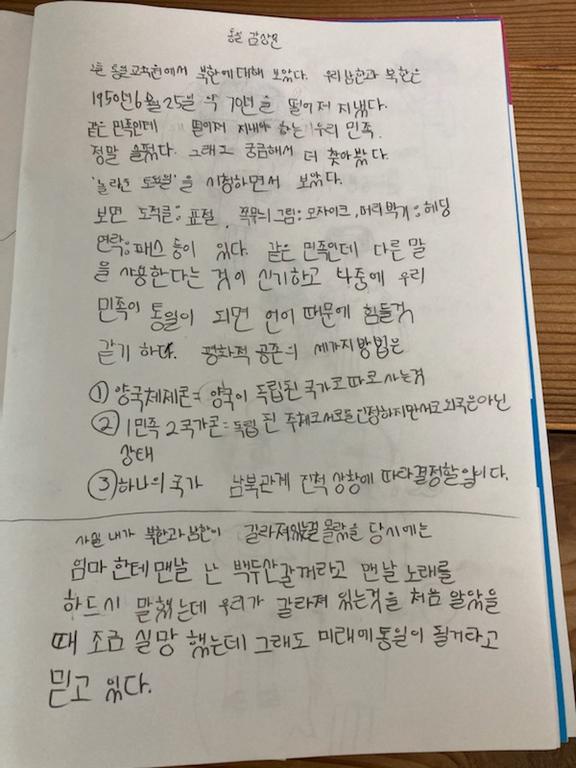 통일 감상문
통일교육원에서 북한에 대해 보았다. 우리 남한과 북한은
1950년 6월 25일 약 70년을 떨어저 지냈다.
같은 민족인데 떨어저 지내야 하는 우리 민족.
정말 슬펐다. 그래고 궁금해서 더 찾아봤다.
'놀라운 토요일'을 시청하면서 보았다.
보면 도적글: 표절, 쪽무늬그림: 모자이크, 머리박기: 헤딩
연락: 패스 등이 있다. 같은 민족인데 다른 말
을 사용한다는 것이 신기하고 나중에 우리
민족이 통일이 되면 언어 때문에 힘들것
같기 하다. 평화적 공존의 세가지 방법은
① 양국체제론= 양국이 독립된 국가로 따로 사는것
② 1민족 2국가론= 독립 된 주체로 서로를 인정하지만 서로 외국은 아닌
상태
③ 하나의 국가 남북관계 진척 상황에 따라 결정할 일 이다.
사실 내가 북한과 남한이 갈라져있는걸 몰랐을 당시에는
엄마 한테 맨날 난 백두산 갈꺼라고 맨날 노래를
하드시 말했는데 우리가 갈라져 있는것을 처음 알았을
때 조금 실망 했는데 그래도 미래에 통일이 될거라고
믿고 있다.